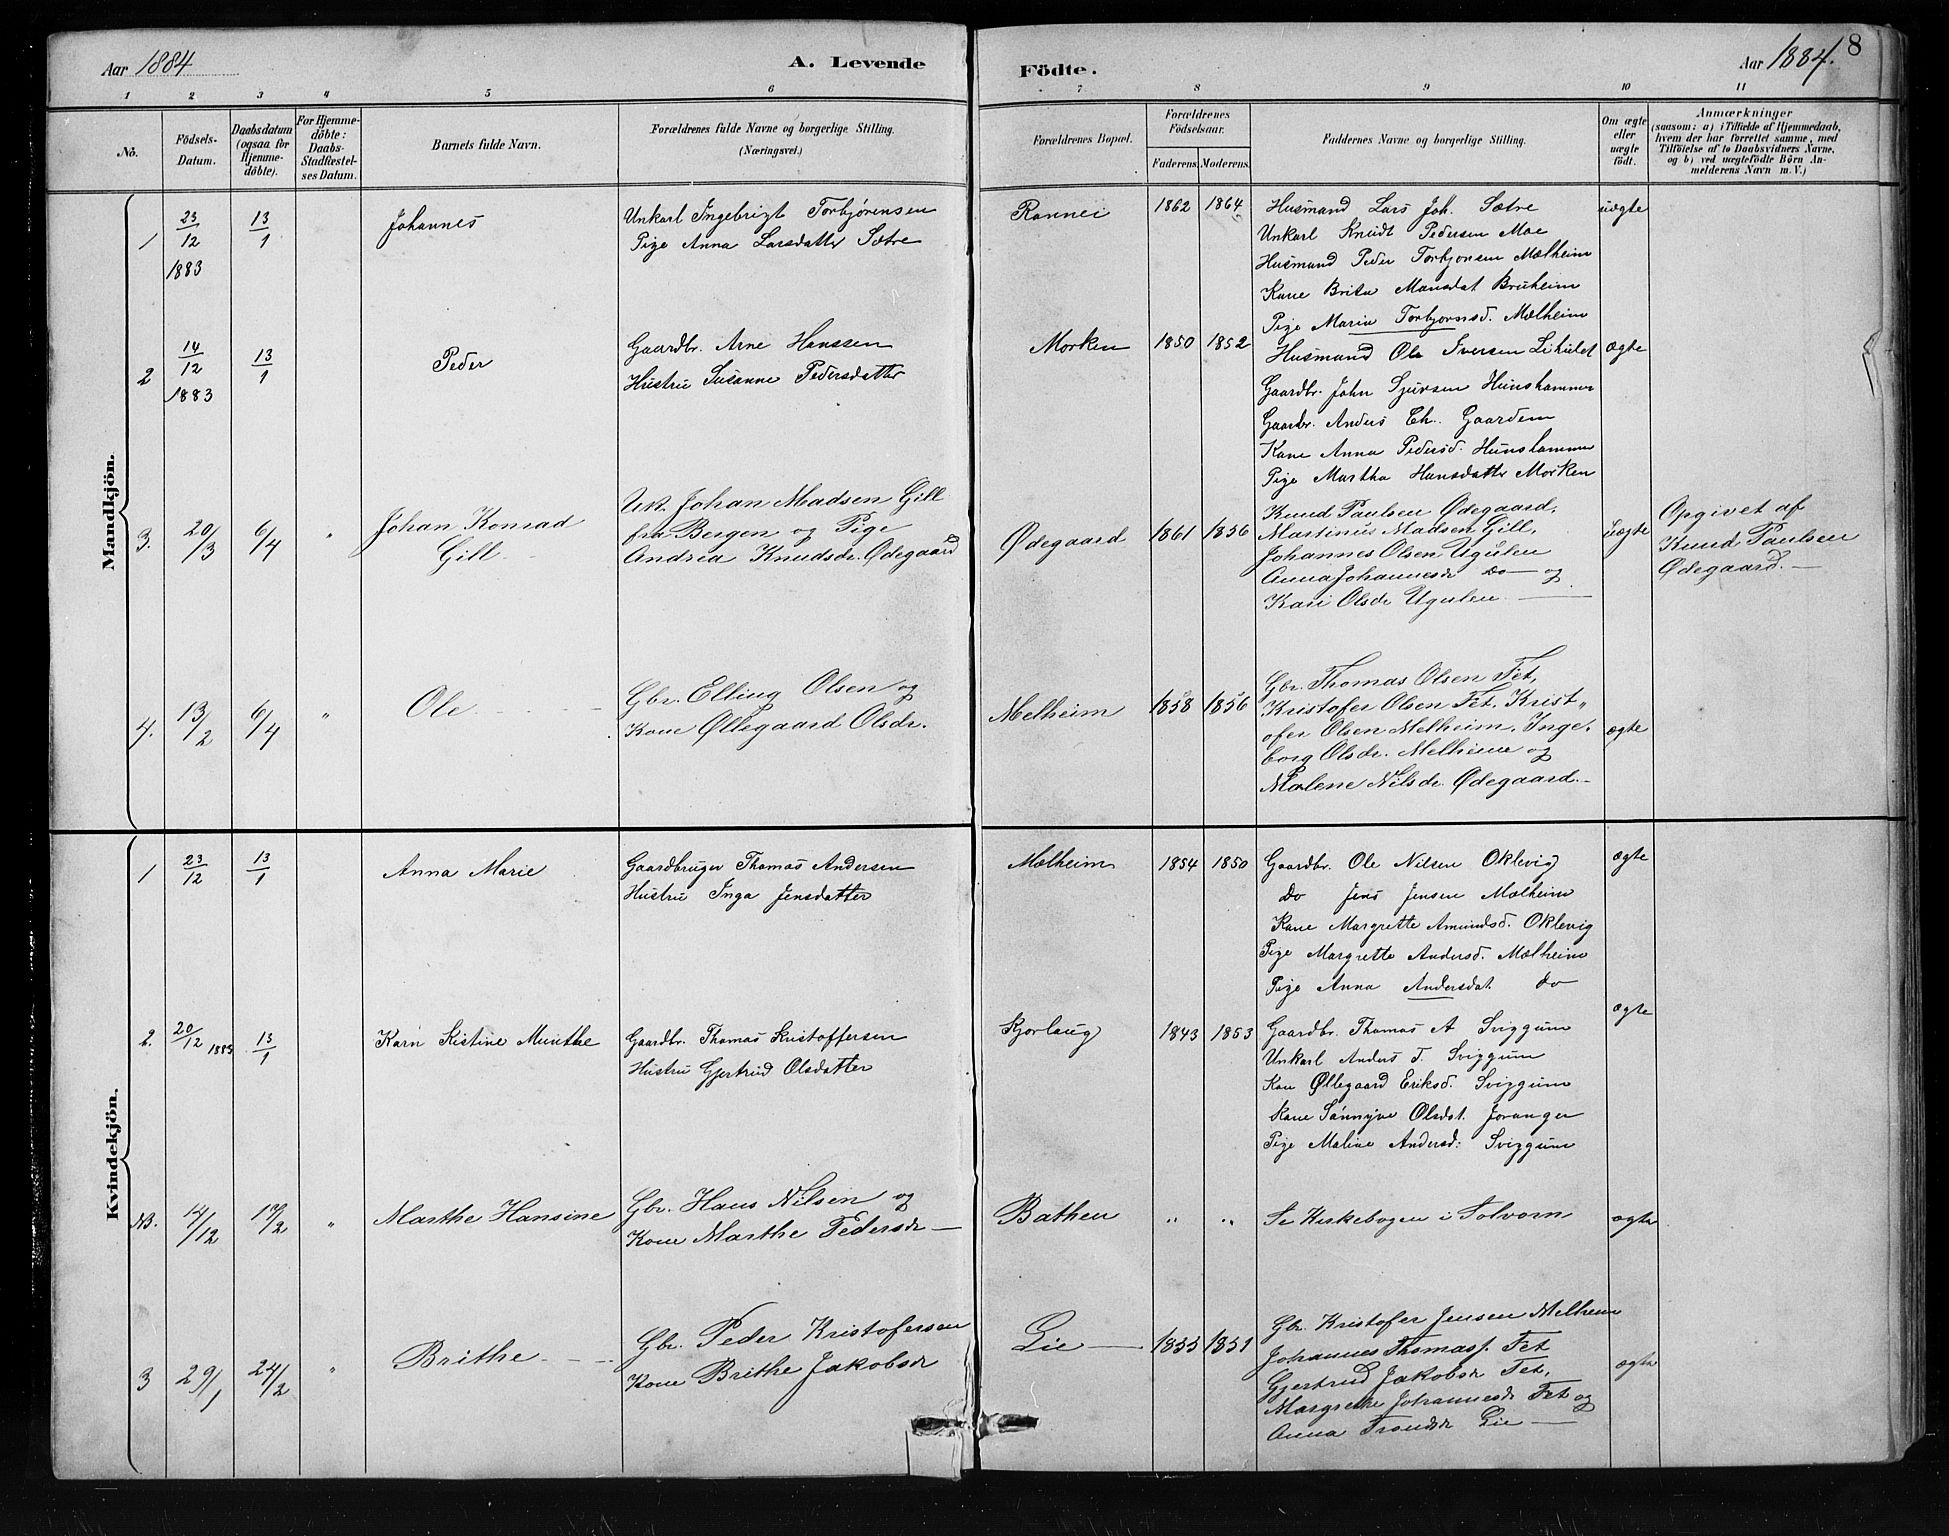 Aar 1884
A. Levende
Födte.
Aar 1884.
8
1 2 3 4 5 6 7 8 9 10 11
No.
Födsels-
Datum.
Daabsdatum
(ogsaa for
Hjemme-
döbte).
For Hjemme-
döbte:
Daabs-
Stadfæstel-
ses Datum.
Barnets fulde Navn.
Forældrenes fulde Navne og borgerlige Stilling.
(Næringsvei.)
Forældrenes Bopæl.
Forældrenes
Födselsaar.
Faderens. Moderens.
Faddernes Navne og borgerlige Stilling.
Om ægte
eller
uægte
födt.
Anmærkninger
(saasom: a) i Tilfælde af Hjemmedaab,
hvem der har forrettet samme, med
Tilföielse af to Daabsvidners Navne,
og b) ved uægtefödte Börn An-
melderens Navn m. V.)
Mandkjön.
1 23/12 1883 13/1 Johannes
Unkarl Ingebrigt Torbjørensen
Pige Anna Larsdatter Sætre
Ronnei 1862 1864
Husmand Lars Joh. Sætre
Unkarl Knudt Pedersen Moe
Husmand Peder Torbjorsen Mælheim
Kone Brita Monsdat Bruheim
Pige Maria Torbjornsd. Mælheim
uægte
2 14/12 1883 13/1 Peder
Gaardbr. Arne Hanssen
Hustru Susanne Pedersdatter
Morken 1850 1852
Husmand Ole Iversen
Gaardbr. John Sjursen Hunshammer
Gaardbr. Anders Ch. Gaarden
Kone Anna Pedersd. Hunshammer
Pige Martha Hansdatter Morken
ægte
3. 20/3 6/4 " Johan Konrad
Gill
Uk. Johan Madsen Gill
fra Bergen og Pige
Andrea Knudsdr. Ødegaard
Ødegaard 1861 1856
Knud Paulsen Ødegaard,
Martinus Madsen Gill,
Johannes Olsen Ugulen
Anna Johannesdr Do og
Kari Olsdr Ugulen
uægte
Opgivet af
Knud Paulsen
Ødegaard.
4. 13/2 6/4 " Ole
Gbr. Elling Olsen og
Kone Øllegaard Olsdr.
Melheim 1858 1856
Gbr. Thomas Olsen Fet,
Kristofer Olsen Fet, Krist„
ofer Olsen Melheim, Inge„
borg Olsdr. Melheim og
Malene Nilsdr. Ødegaard.
ægte
Kvindekjön.
1 23/12 13/1 Anna Marie
Gaardbruger Thomas Andersen
Hustru Inga Jensdatter
Mælheim 1854 1850
Gaardbr. Ole Nilsen Oklevig
Do Jens Jensen Mælheim
Kone Margrette Amundsd. Oklevig
Pige Margrette Andersd. Mælheim
Pige Anna Andersdat. Do
ægte
2. 20/12 1883 13/1 Karn Kistine Munthe
Gaardbr. Thomas Kristoffersen
Hustru Gjertrud Olsdatter
Kjorlaug 1843 1853
Gaardbr. Thomas A Sviggum
Unkarl Anders T. Sviggum
Kon Øllegaard Eriksd. Sviggum
Kone Sønnyve Olsdat. Joranger
Pige Maline Andersd: Sviggum
ægte
NB. 14/12 17/2 " Marthe Hansine
Gbr. Hans Nilsen og
Kone Marthe Pedersdr
Bathen " "
Se Kirkebogen i Solvorn
ægte
3 29/1 24/2 " Brithe
Gbr. Peder Kristofersen
Kone Brithe Jakobsdr
Lie 1855 1851
Gbr. Kristofer Jensen Melheim
Johannes Thomass. Fet
Gjertrud Jakobsdr Fet,
Margrethe Johannesdr Fet og
Anna Trondsdr Lie
ægte